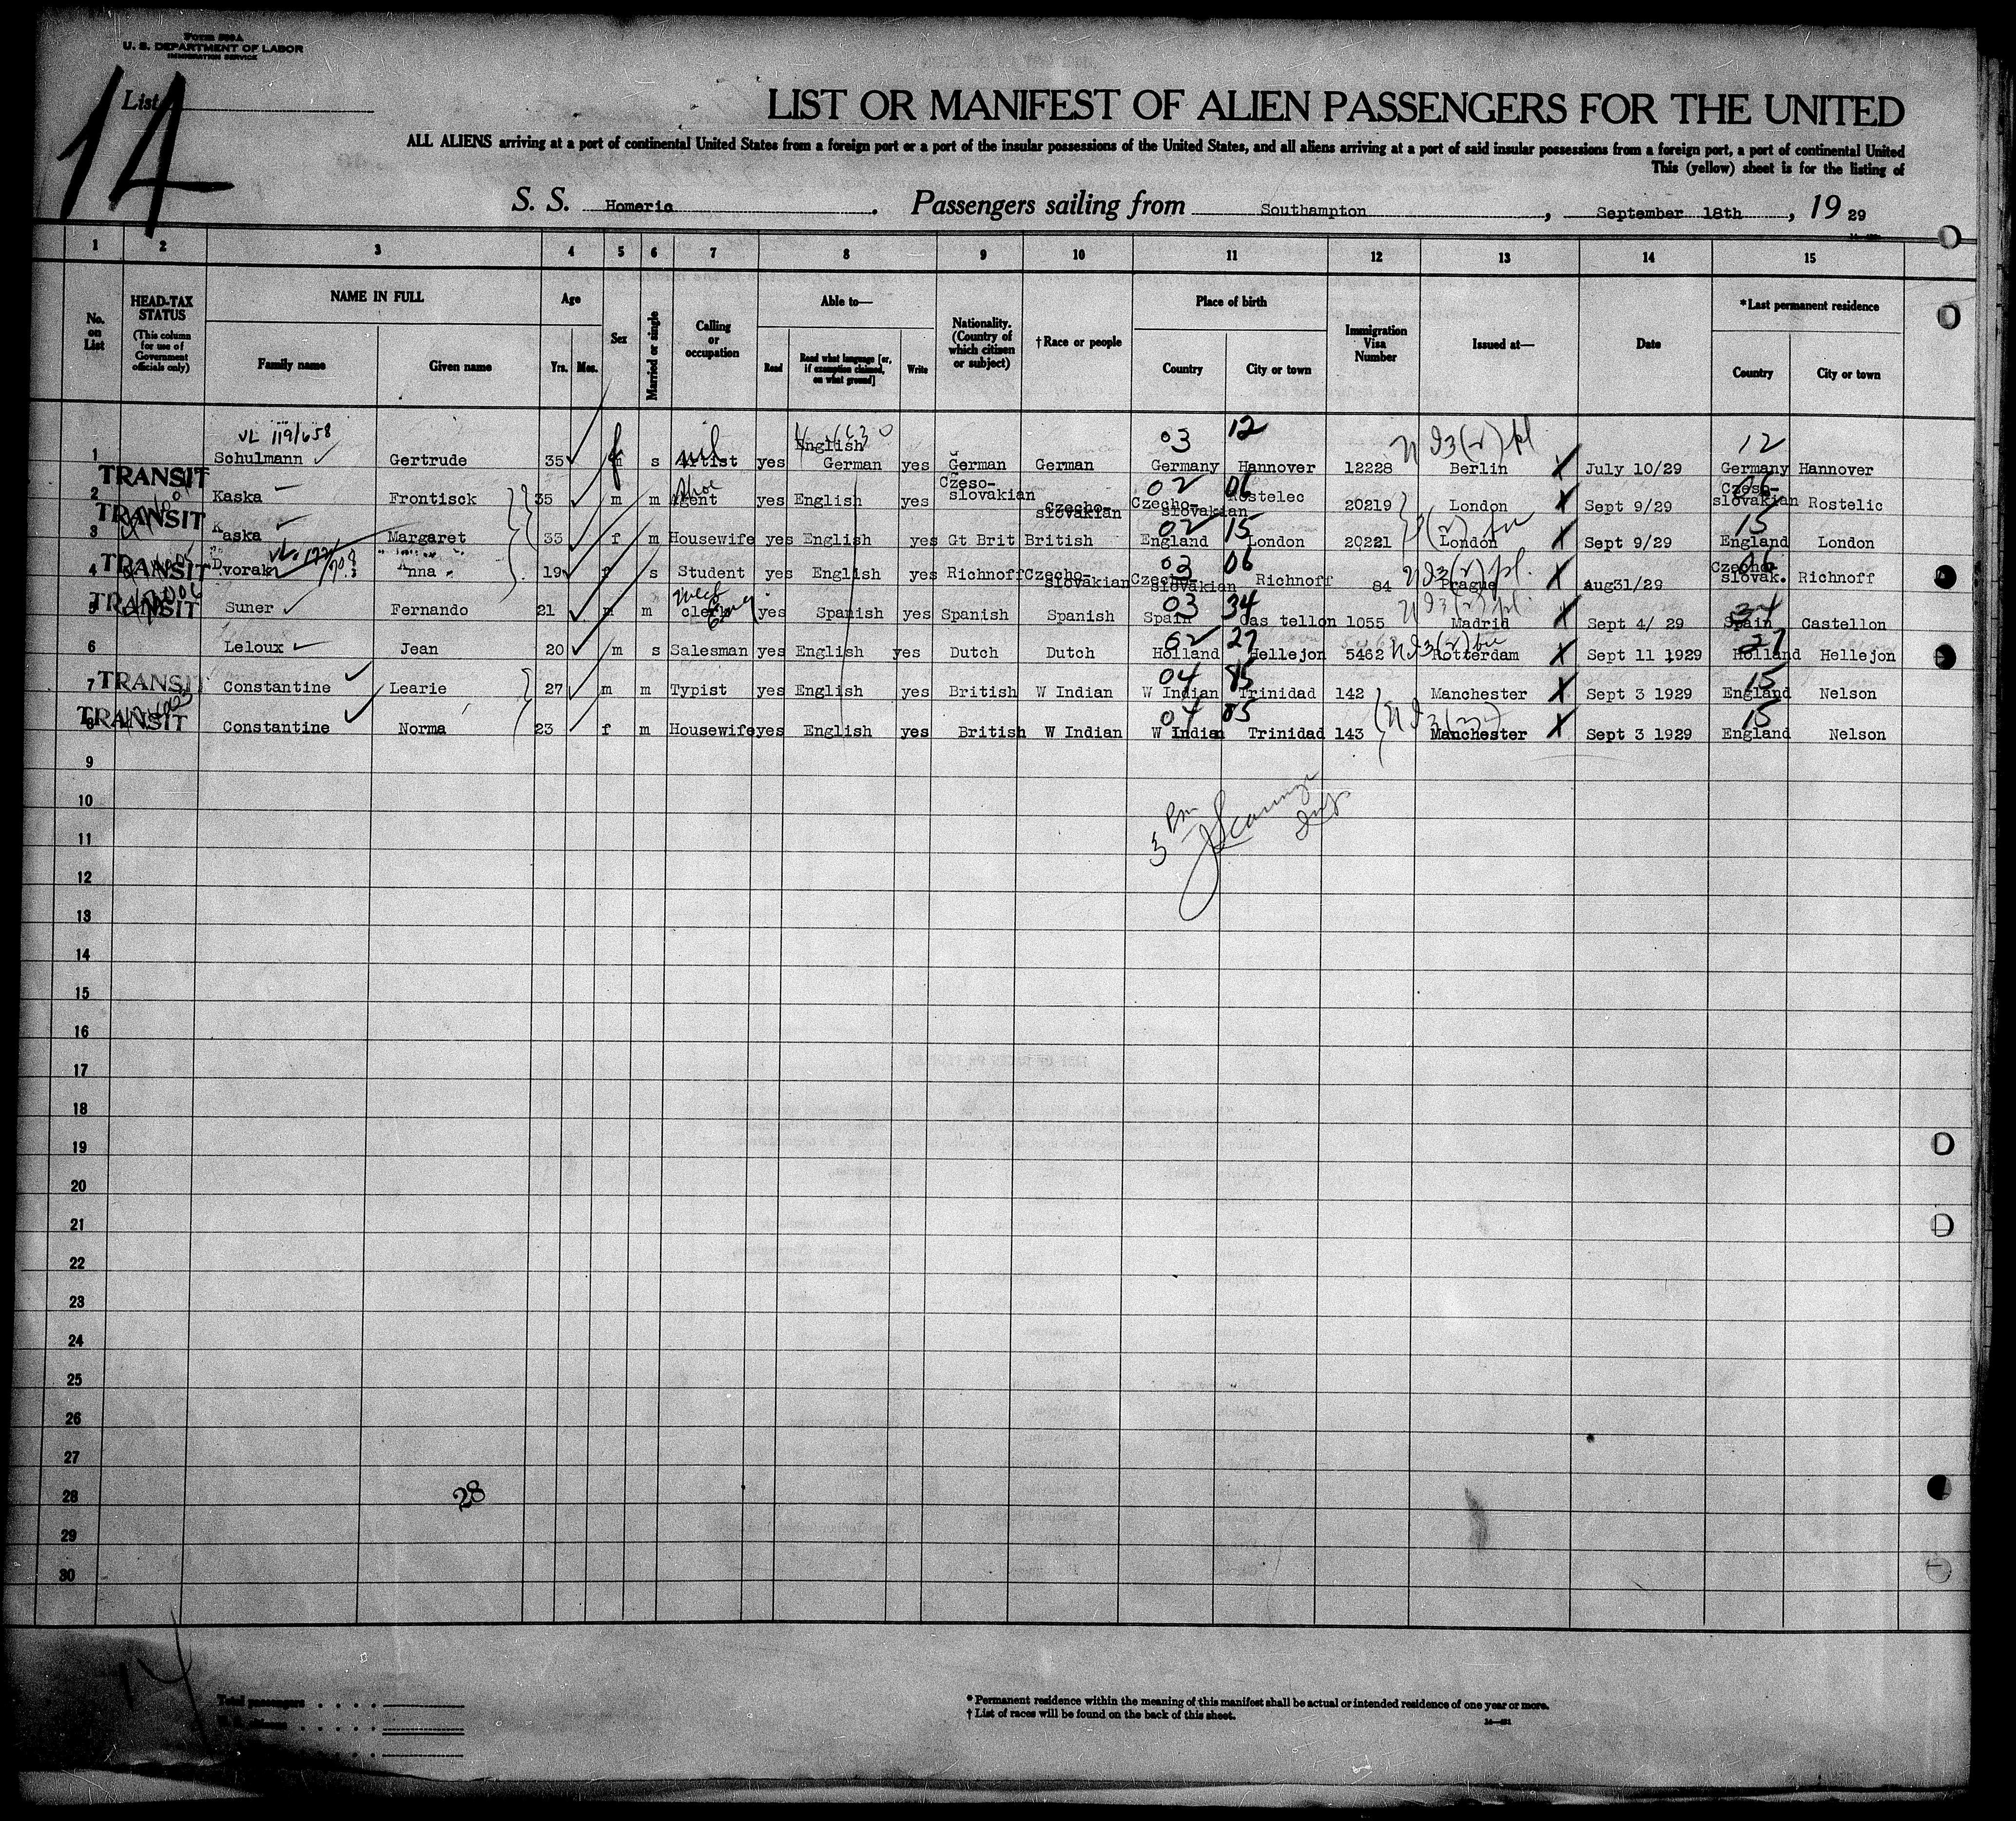 Form 500A
U. S. DEPARTMENT OF LABOR
IMMIGRATION SERVICE
List 14
LIST OR MANIFEST OF ALIEN PASSENGERS FOR THE UNITED
ALL ALIENS arriving at a port of continental United States from a foreign port or a port of the insular possessions of the United States, and all aliens arriving at a port of said insular possessions from a foreign port, a port of continental United
This (yellow) sheet is for the listing of
S. S. Homeric . Passengers sailing from Southampton , September 18th , 19 29
1 2 3 4 5 6 7 8 9 10 11 12 13 14 15
No. on List
HEAD-TAX STATUS
(This column for use of Government officials only)
NAME IN FULL
Family name Given name
Age
Yrs. Mos.
Sex
Married or single
Calling or occupation
Able to—
Read
Read what language [or, if exemption claimed, on what ground]
Write
Nationality. (Country of which citizen or subject)
† Race or people
Place of birth
Country City or town
Immigration Visa Number
Issued at—
Date
*Last permanent residence
Country City or town
VL 119/658 English 03 12 12
1 Schulmann Gertrude 35 f s Artist yes German yes German German Germany Hannover 12228 Berlin X July 10/29 Germany Hannover
TRANSIT
2 Kaska Frontisck 35 m m Agent yes English yes Czeso-slovakian Czecho-slovakian Czecho-slovakian 02 06 Rostelec 20219 London X Sept 9/29 Czeso-slovakian 06 Rostelic
TRANSIT
3 Kaska Margaret 33 f m Housewife yes English yes Gt Brit British England 02 15 London 20221 London X Sept 9/29 England 15 London
TRANSIT
4 Dvorak Anna 19 f s Student yes English yes Richnoff Czecho-slovakian Czecho-slovakian 03 06 Richnoff 84 Prague X Aug31/29 Czecho-slovak. 06 Richnoff
TRANSIT
5 Suner Fernando 21 m m clerk yes Spanish yes Spanish Spanish Spain 03 34 Cas tellon 1055 Madrid X Sept 4/ 29 Spain 34 Castellon
6 Leloux Jean 20 m s Salesman yes English yes Dutch Dutch Holland 02 27 Hellejon 5462 Rotterdam X Sept 11 1929 Holland 27 Hellejon
7 TRANSIT Constantine Learie 27 m m Typist yes English yes British W Indian W Indian 04 85 Trinidad 142 Manchester X Sept 3 1929 England 15 Nelson
8 TRANSIT Constantine Norma 23 f m Housewife yes English yes British W Indian W Indian 04 85 Trinidad 143 Manchester X Sept 3 1929 England 15 Nelson
9
10
11
12
13
14
15
16
17
18
19
20
21
22
23
24
25
26
27
28
28
29
30
14
Total passengers
* Permanent residence within the meaning of this manifest shall be actual or intended residence of one year or more.
† List of races will be found on the back of this sheet.